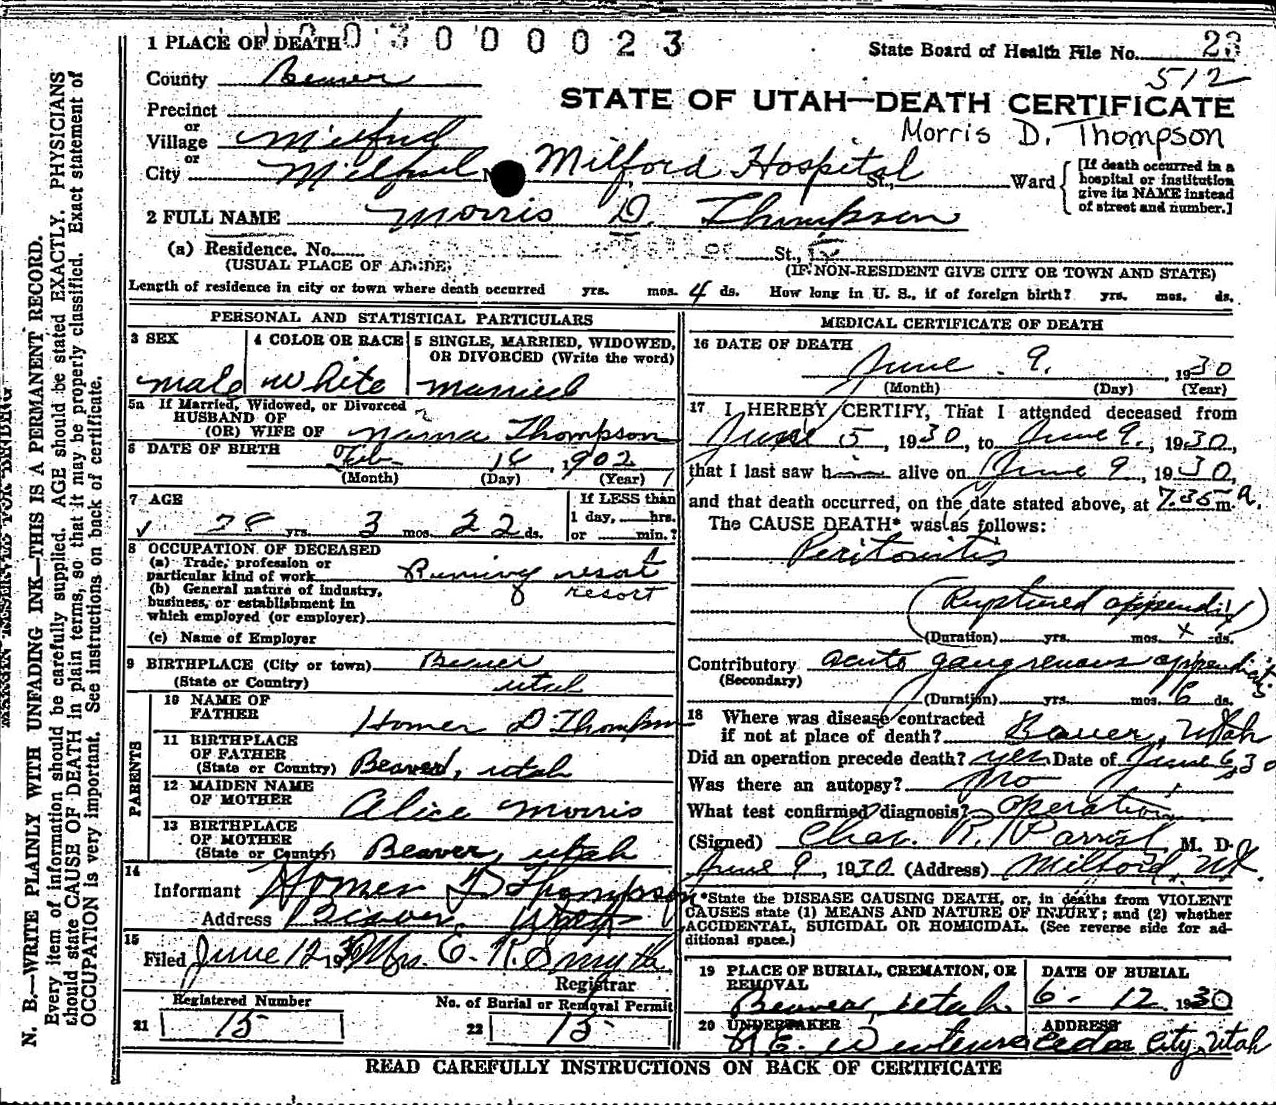 1 PLACE OF DEATH 0 3 0 0 0 0 2 3
State Board of Health File No. 23
County Beaver
512
STATE OF UTAH—DEATH CERTIFICATE
Precinct
Morris D. Thompson
or
Village Milford
or
City Milford Milford Hospital St., Ward
[If death occurred in a
hospital or institution
give its NAME instead
of street and number.]
2 FULL NAME Morris D. Thompson
(a) Residence. No. St.,
(USUAL PLACE OF ABODE)
(IF NON-RESIDENT GIVE CITY OR TOWN AND STATE)
Length of residence in city or town where death occurred yrs. mos. 4 ds. How long in U. S., if of foreign birth? yrs. mos. ds.
PERSONAL AND STATISTICAL PARTICULARS
3 SEX
male
4 COLOR OR RACE
White
5 SINGLE, MARRIED, WIDOWED,
OR DIVORCED (Write the word)
married
5a If Married, Widowed, or Divorced
HUSBAND OF
(OR) WIFE OF Thompson
6 DATE OF BIRTH Feb 1902
(Month) (Day) (Year)
7 AGE
28 yrs. 3 mos. 22 ds.
If LESS than
1 day, hrs.
or min.?
8 OCCUPATION OF DECEASED
(a) Trade, profession or
particular kind of work Running resort
(b) General nature of industry, resort
business, or establishment in
which employed (or employer)
(c) Name of Employer
9 BIRTHPLACE (City or town) Beaver
(State or Country) Utah
PARENTS
10 NAME OF
FATHER Homer D. Thompson
11 BIRTHPLACE
OF FATHER
(State or Country) Beaver, Utah
12 MAIDEN NAME
OF MOTHER Alice Morris
13 BIRTHPLACE
OF MOTHER
(State or Country) Beaver, Utah
14
Informant Homer D Thompson
Address Beaver Utah
15
Filed June 12 1930 Mrs. E. R. Smyth
Registrar
Registered Number
21 15
No. of Burial or Removal Permit
22 15
MEDICAL CERTIFICATE OF DEATH
16 DATE OF DEATH
June 9. , 1930
(Month) (Day) (Year)
17 I HEREBY CERTIFY, That I attended deceased from
June 5, 1930, to June 9., 1930,
that I last saw him alive on June 9, 1930,
and that death occurred, on the date stated above, at 7.35 m a.
The CAUSE DEATH* was as follows:
Peritonitis
(Ruptured appendix)
(Duration) yrs. mos. x ds.
Contributory acute gangrenous appendicitis
(Secondary)
(Duration) yrs. mos. 6 ds.
18 Where was disease contracted
if not at place of death? Beaver, Utah
Did an operation precede death? yes Date of June 6, 30
Was there an autopsy? no
What test confirmed diagnosis? operation
(Signed) Chas. R. Parrish M. D.
June 9, 1930 (Address) Milford, Ut.
*State the DISEASE CAUSING DEATH, or, in deaths from VIOLENT
CAUSES state (1) MEANS AND NATURE OF INJURY; and (2) whether
ACCIDENTAL, SUICIDAL OR HOMICIDAL. (See reverse side for ad-
ditional space.)
19 PLACE OF BURIAL, CREMATION, OR
REMOVAL
Beaver, Utah
DATE OF BURIAL
6 - 12 1930
20 UNDERTAKER
ADDRESS
Cedar City, Utah
READ CAREFULLY INSTRUCTIONS ON BACK OF CERTIFICATE
MARGIN RESERVED FOR BINDING
N. B.—WRITE PLAINLY WITH UNFADING INK—THIS IS A PERMANENT RECORD.
Every item of information should be carefully supplied. AGE should be stated EXACTLY. PHYSICIANS
should state CAUSE OF DEATH in plain terms, so that it may be properly classified. Exact statement of
OCCUPATION is very important. See instructions on back of certificate.